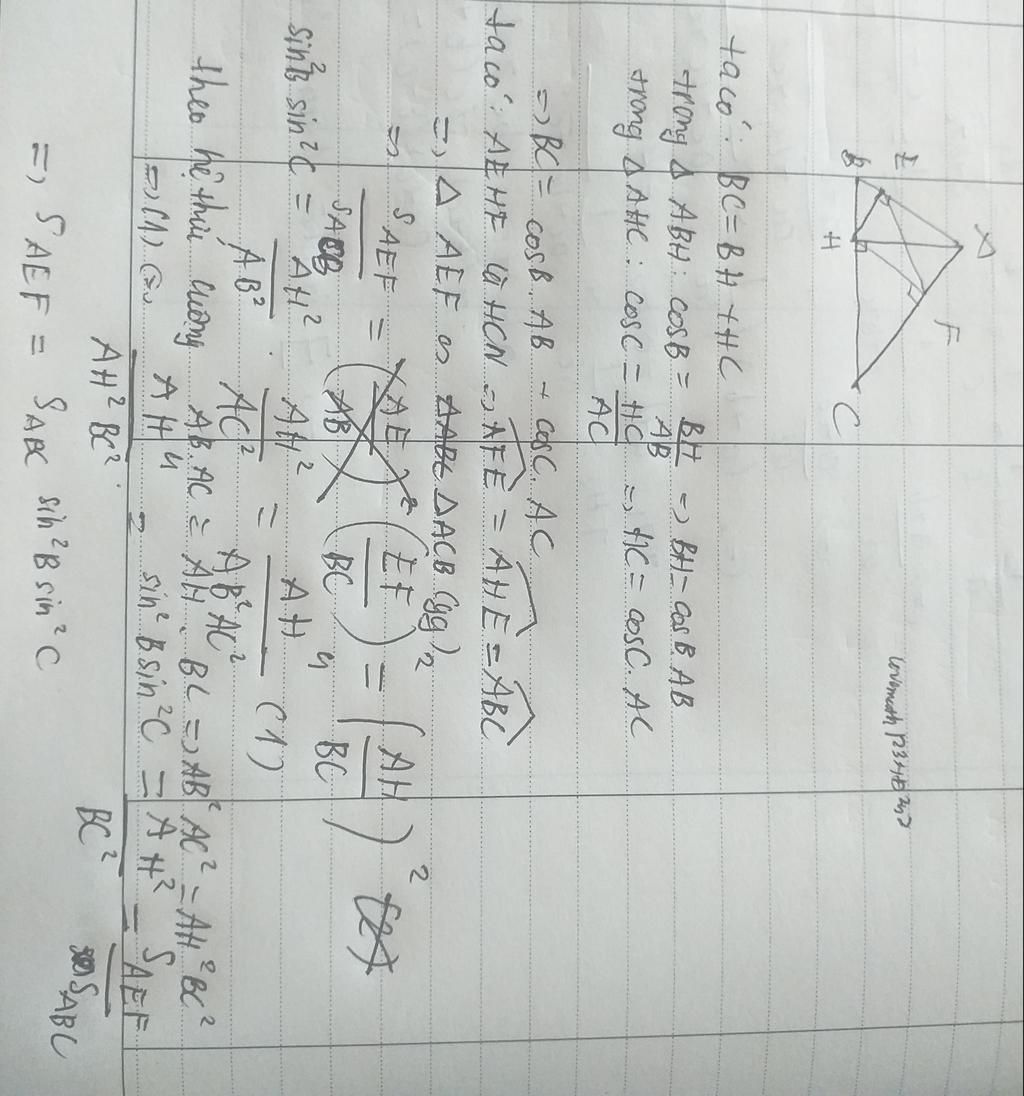 A
E
F
B
H
C
ta có: BC = BH + HC
trong Δ ABH: cosB = BH/AB => BH = cosB.AB
trong Δ AHC: cosC = HC/AC => HC = cosC.AC
=> BC = cosB.AB + cosC.AC
ta có: AEHF là HCN => AFE = AHE = ABC
=> Δ AEF ∽ ΔACB (gg)
=> S AEF / S ACB = (EF/BC)² = (AH/BC)²
sin²B sin²C = AH²/AB² . AH²/AC² = AH⁴/AB²AC² (1)
theo hệ thức lượng AB.AC = AH.BC => AB²AC² = AH²BC²
=> (1) <=> AH⁴/AH²BC² = sin²Bsin²C = AH²/BC² = S AEF / S ABC
=> S AEF = S ABC sin²B sin²C